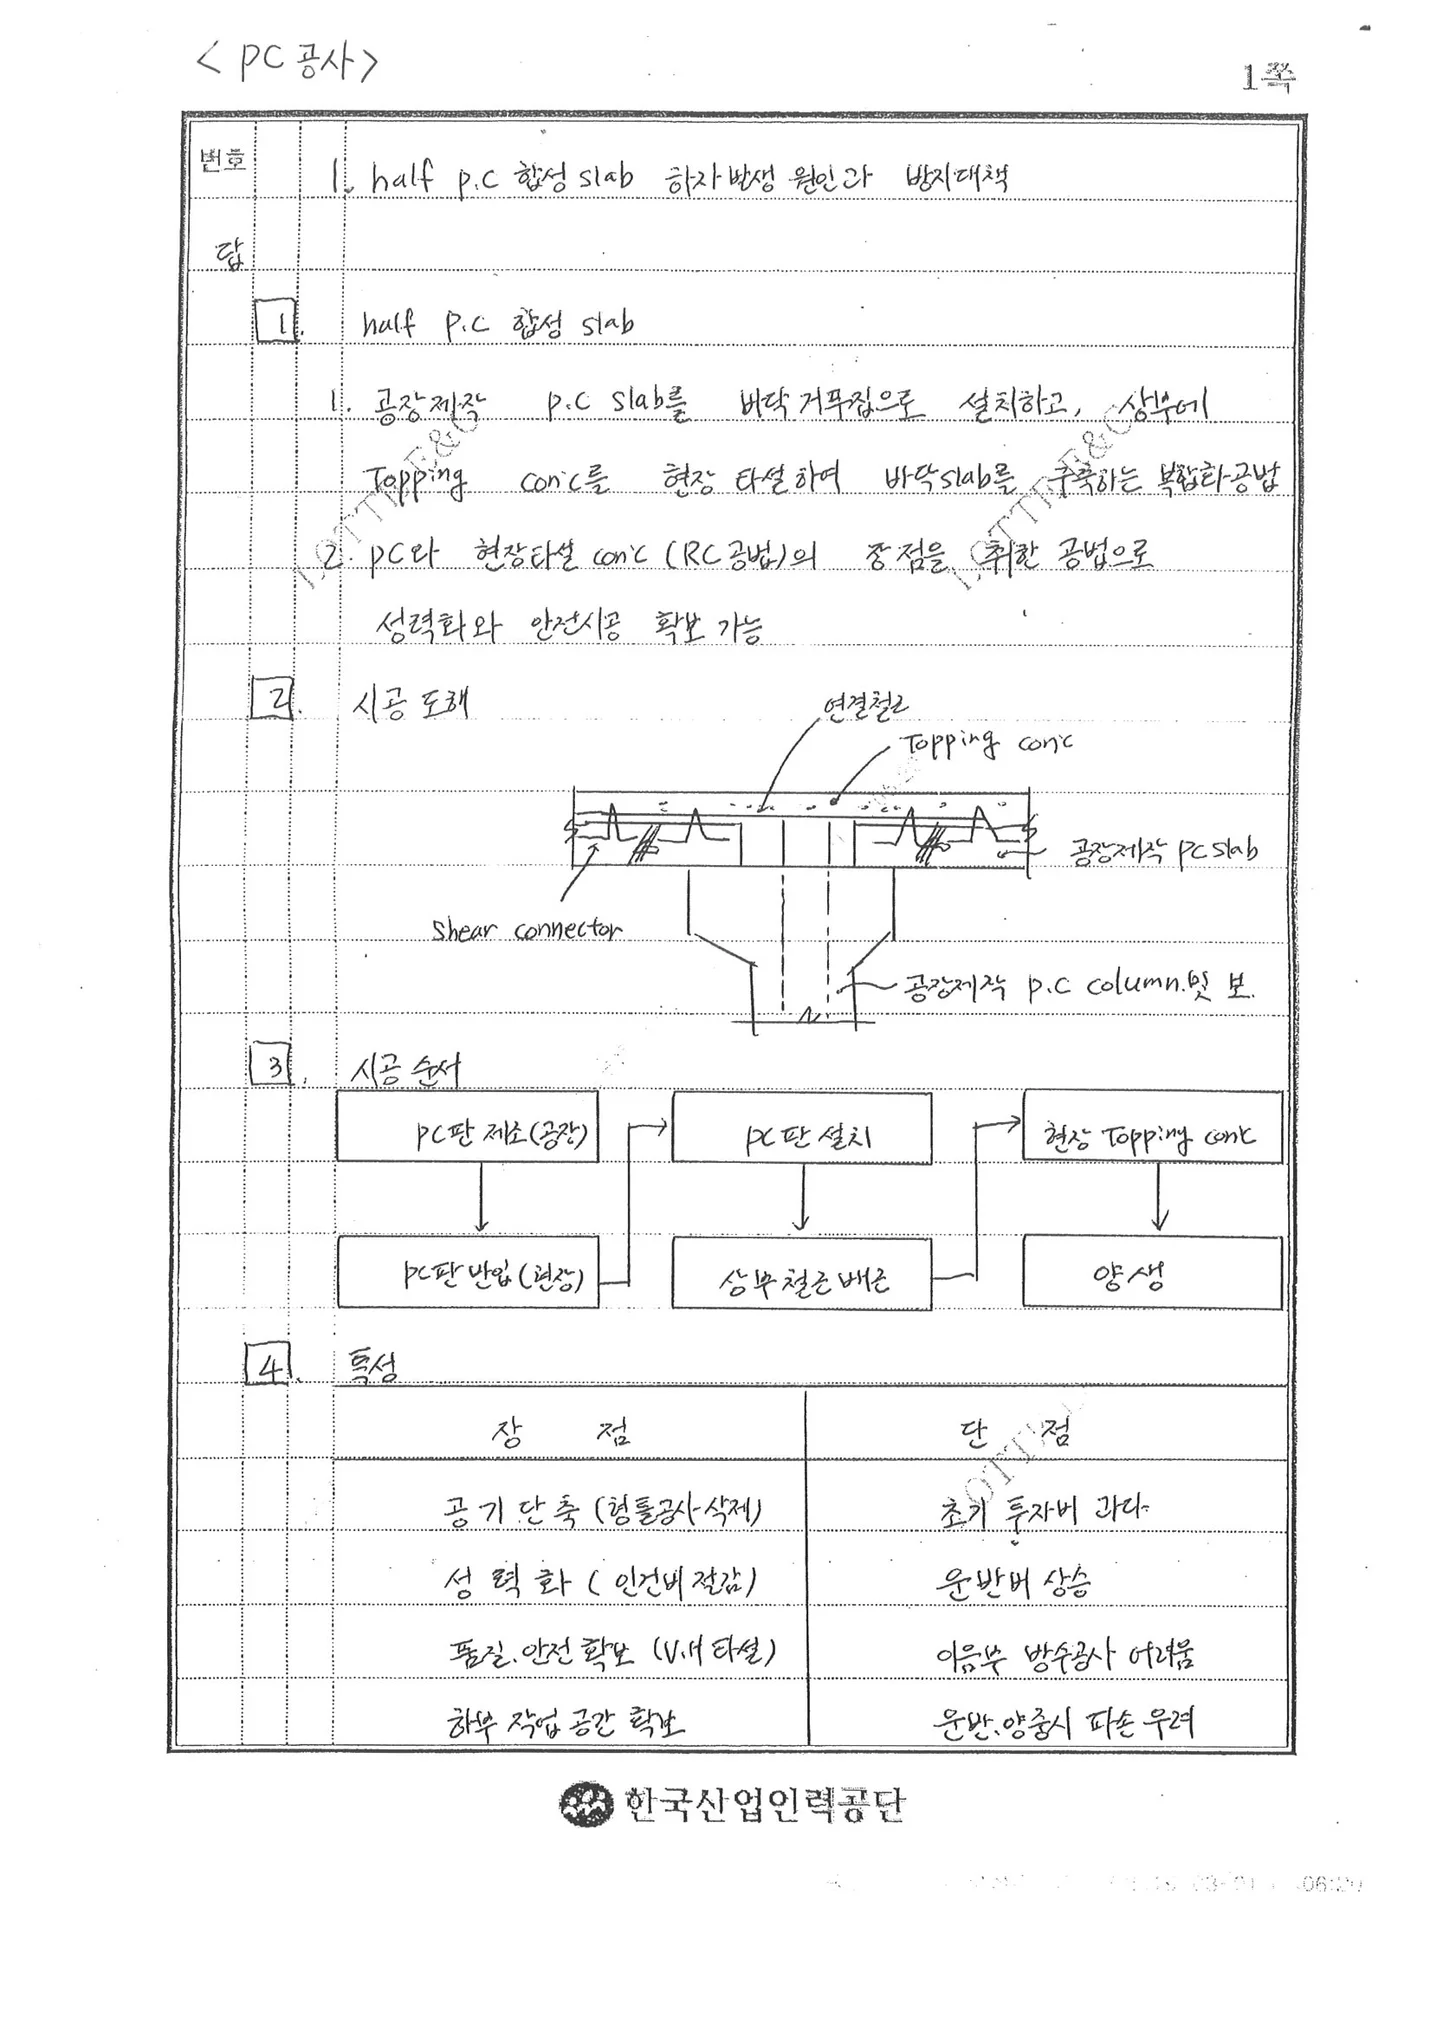 < PC 공사 >
1쪽
번호
1. half p.c 합성 slab 하자발생 원인과 방지대책
답
1. half p.c 합성 slab
1. 공장제작 p.c slab를 바닥거푸집으로 설치하고, 상부에
Topping con'c를 현장타설하여 바닥slab를 구축하는 복합화공법
2. PC와 현장타설 con'c (RC공법)의 장점을 취한 공법으로
성력화와 안전시공 확보 가능
2. 시공 도해
연결철근
Topping con'c
공장제작 PC slab
Shear connector
공장제작 p.c column.및 보.
3. 시공 순서
PC판 제조(공장)
PC판 설치
현장 Topping con'c
PC판 반입(현장)
상부철근배근
양생
4. 특성
장 점
단 점
공기단축 (형틀공사삭제)
초기 투자비 과다
성력화 (인건비절감)
운반비 상승
품질.안전확보 (V.H타설)
이음부 방수공사 어려움
하부 작업 공간 확보
운반.양중시 파손우려
한국산업인력공단
LOTTE E&C
LOTTE E&C